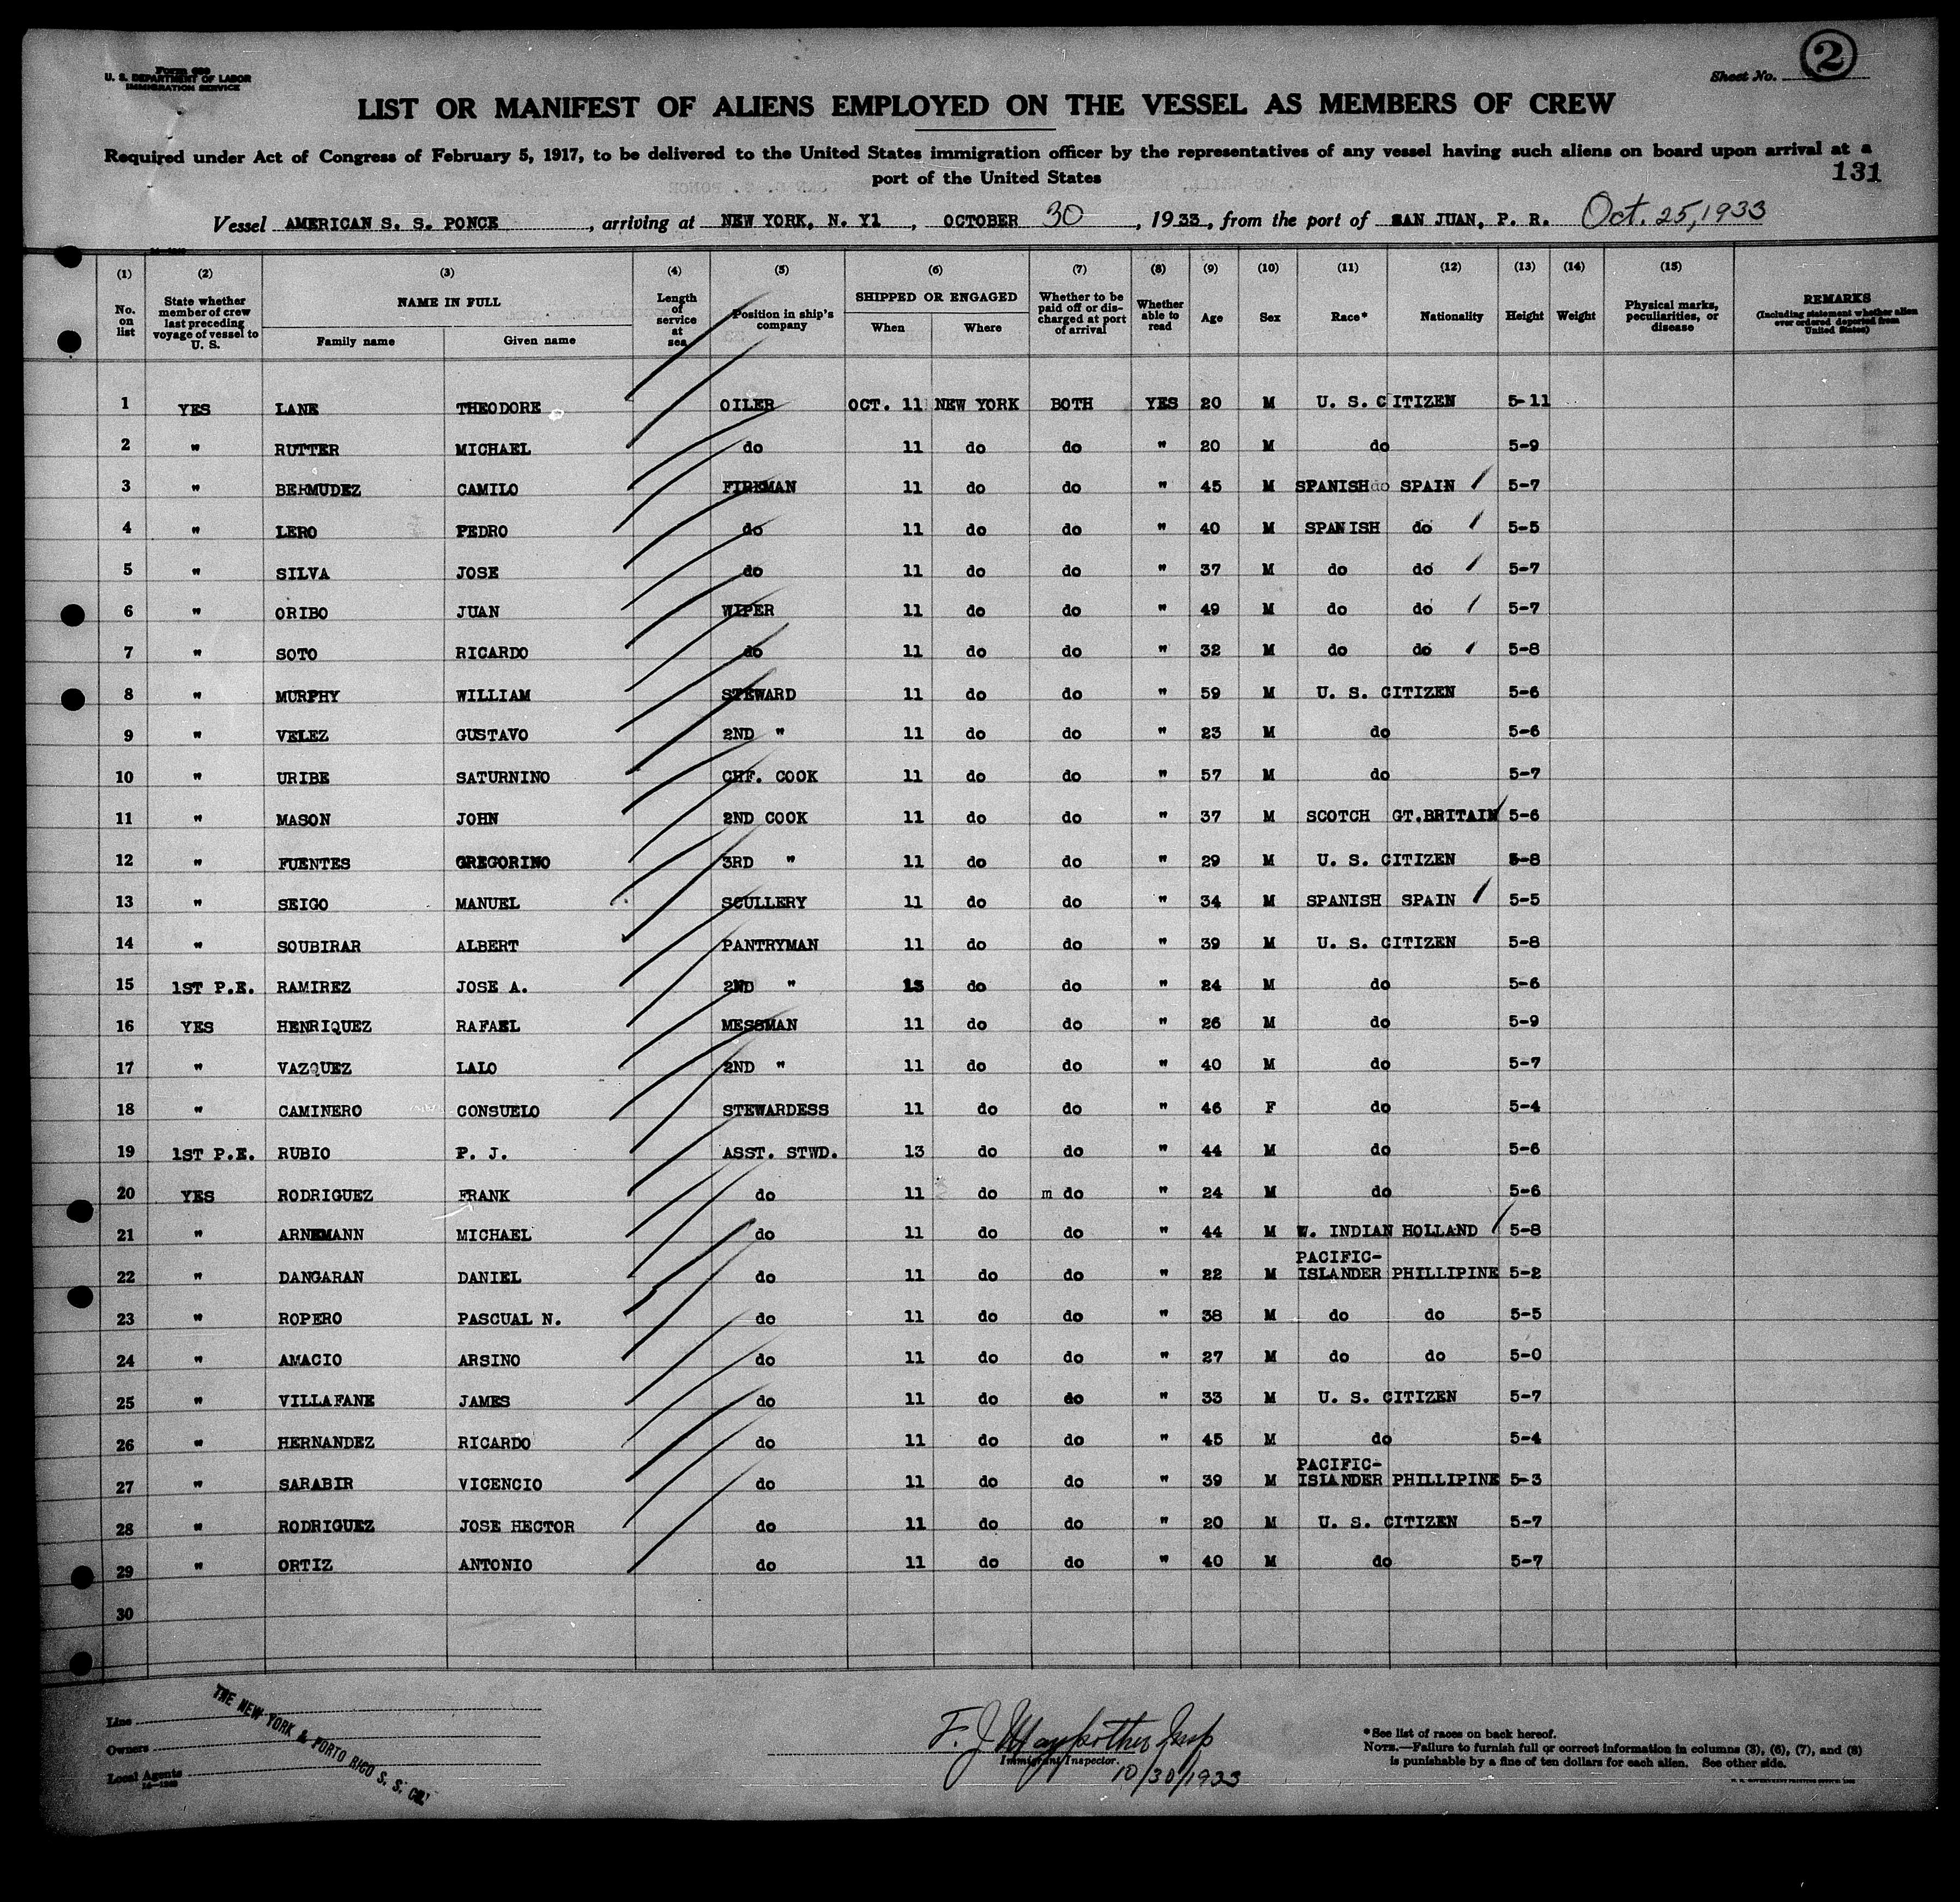 Form 689
U. S. DEPARTMENT OF LABOR
IMMIGRATION SERVICE
Sheet No. 2
LIST OR MANIFEST OF ALIENS EMPLOYED ON THE VESSEL AS MEMBERS OF CREW
Required under Act of Congress of February 5, 1917, to be delivered to the United States immigration officer by the representatives of any vessel having such aliens on board upon arrival at a
port of the United States
131
Vessel AMERICAN S. S. PONCE, arriving at NEW YORK, N. Y1, OCTOBER 30, 1933, from the port of SAN JUAN, P. R. Oct. 25, 1933
(1) (2) (3) (4) (5) (6) (7) (8) (9) (10) (11) (12) (13) (14) (15)
No. on list | State whether member of crew last preceding voyage of vessel to U. S. | NAME IN FULL Family name Given name | Length of service at sea | Position in ship's company | SHIPPED OR ENGAGED When Where | Whether to be paid off or discharged at port of arrival | Whether able to read | Age | Sex | Race* | Nationality | Height | Weight | Physical marks, peculiarities, or disease | REMARKS (Including statement whether alien ever ordered deported from United States)
1 YES LANE THEODORE OILER OCT. 11 NEW YORK BOTH YES 20 M U. S. CITIZEN 5-11
2 " RUTTER MICHAEL do 11 do do " 20 M do 5-9
3 " BERMUDEZ CAMILO FIREMAN 11 do do " 45 M SPANISH do SPAIN 5-7
4 " LERO PEDRO do 11 do do " 40 M SPANISH do 5-5
5 " SILVA JOSE do 11 do do " 37 M do do 5-7
6 " ORIBO JUAN WIPER 11 do do " 49 M do do 5-7
7 " SOTO RICARDO do 11 do do " 32 M do do 5-8
8 " MURPHY WILLIAM STEWARD 11 do do " 59 M U. S. CITIZEN 5-6
9 " VELEZ GUSTAVO 2ND " 11 do do " 23 M do 5-6
10 " URIBE SATURNINO CHF. COOK 11 do do " 57 M do 5-7
11 " MASON JOHN 2ND COOK 11 do do " 37 M SCOTCH GT.BRITAIN 5-6
12 " FUENTES GREGORINO 3RD " 11 do do " 29 M U. S. CITIZEN 5-8
13 " SEIGO MANUEL SCULLERY 11 do do " 34 M SPANISH SPAIN 5-5
14 " SOUBIRAR ALBERT PANTRYMAN 11 do do " 39 M U. S. CITIZEN 5-8
15 1ST P.E. RAMIREZ JOSE A. 2ND " 13 do do " 24 M do 5-6
16 YES HENRIQUEZ RAFAEL MESSMAN 11 do do " 26 M do 5-9
17 " VAZQUEZ LALO 2ND " 11 do do " 40 M do 5-7
18 " CAMINERO CONSUELO STEWARDESS 11 do do " 46 F do 5-4
19 1ST P.E. RUBIO P. J. ASST. STWD. 13 do do " 44 M do 5-6
20 YES RODRIGUEZ FRANK do 11 do m do " 24 M do 5-6
21 " ARNEMANN MICHAEL do 11 do do " 44 M W. INDIAN HOLLAND 5-8
22 " DANGARAN DANIEL do 11 do do " 22 M PACIFIC-ISLANDER PHILLIPINE 5-2
23 " ROPERO PASCUAL N. do 11 do do " 38 M do do 5-5
24 " AMACIO ARSINO do 11 do do " 27 M do do 5-0
25 " VILLAFANE JAMES do 11 do do " 33 M U. S. CITIZEN 5-7
26 " HERNANDEZ RICARDO do 11 do do " 45 M do 5-4
27 " SARABIR VICENCIO do 11 do do " 39 M PACIFIC-ISLANDER PHILLIPINE 5-3
28 " RODRIGUEZ JOSE HECTOR do 11 do do " 20 M U. S. CITIZEN 5-7
29 " ORTIZ ANTONIO do 11 do do " 40 M do 5-7
30
Line
Owners
Local Agents
THE NEW YORK & PORTO RICO S. S. CO.
F. J. Insp
Immigrant Inspector.
10/30/1933
*See list of races on back hereof.
NOTE.—Failure to furnish full or correct information in columns (3), (6), (7), and (8)
is punishable by a fine of ten dollars for each alien. See other side.